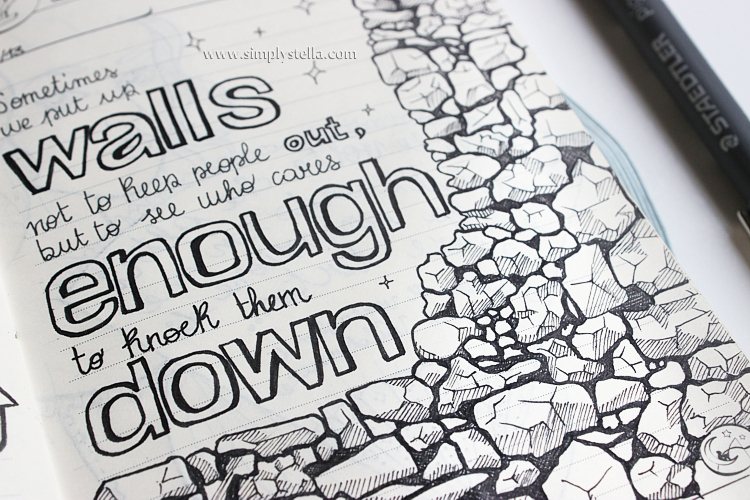 www.simplystella.com
/13
Sometimes
we put up
walls
not to keep people out,
but to see who cares
enough
to knock them
down
STAEDTLER